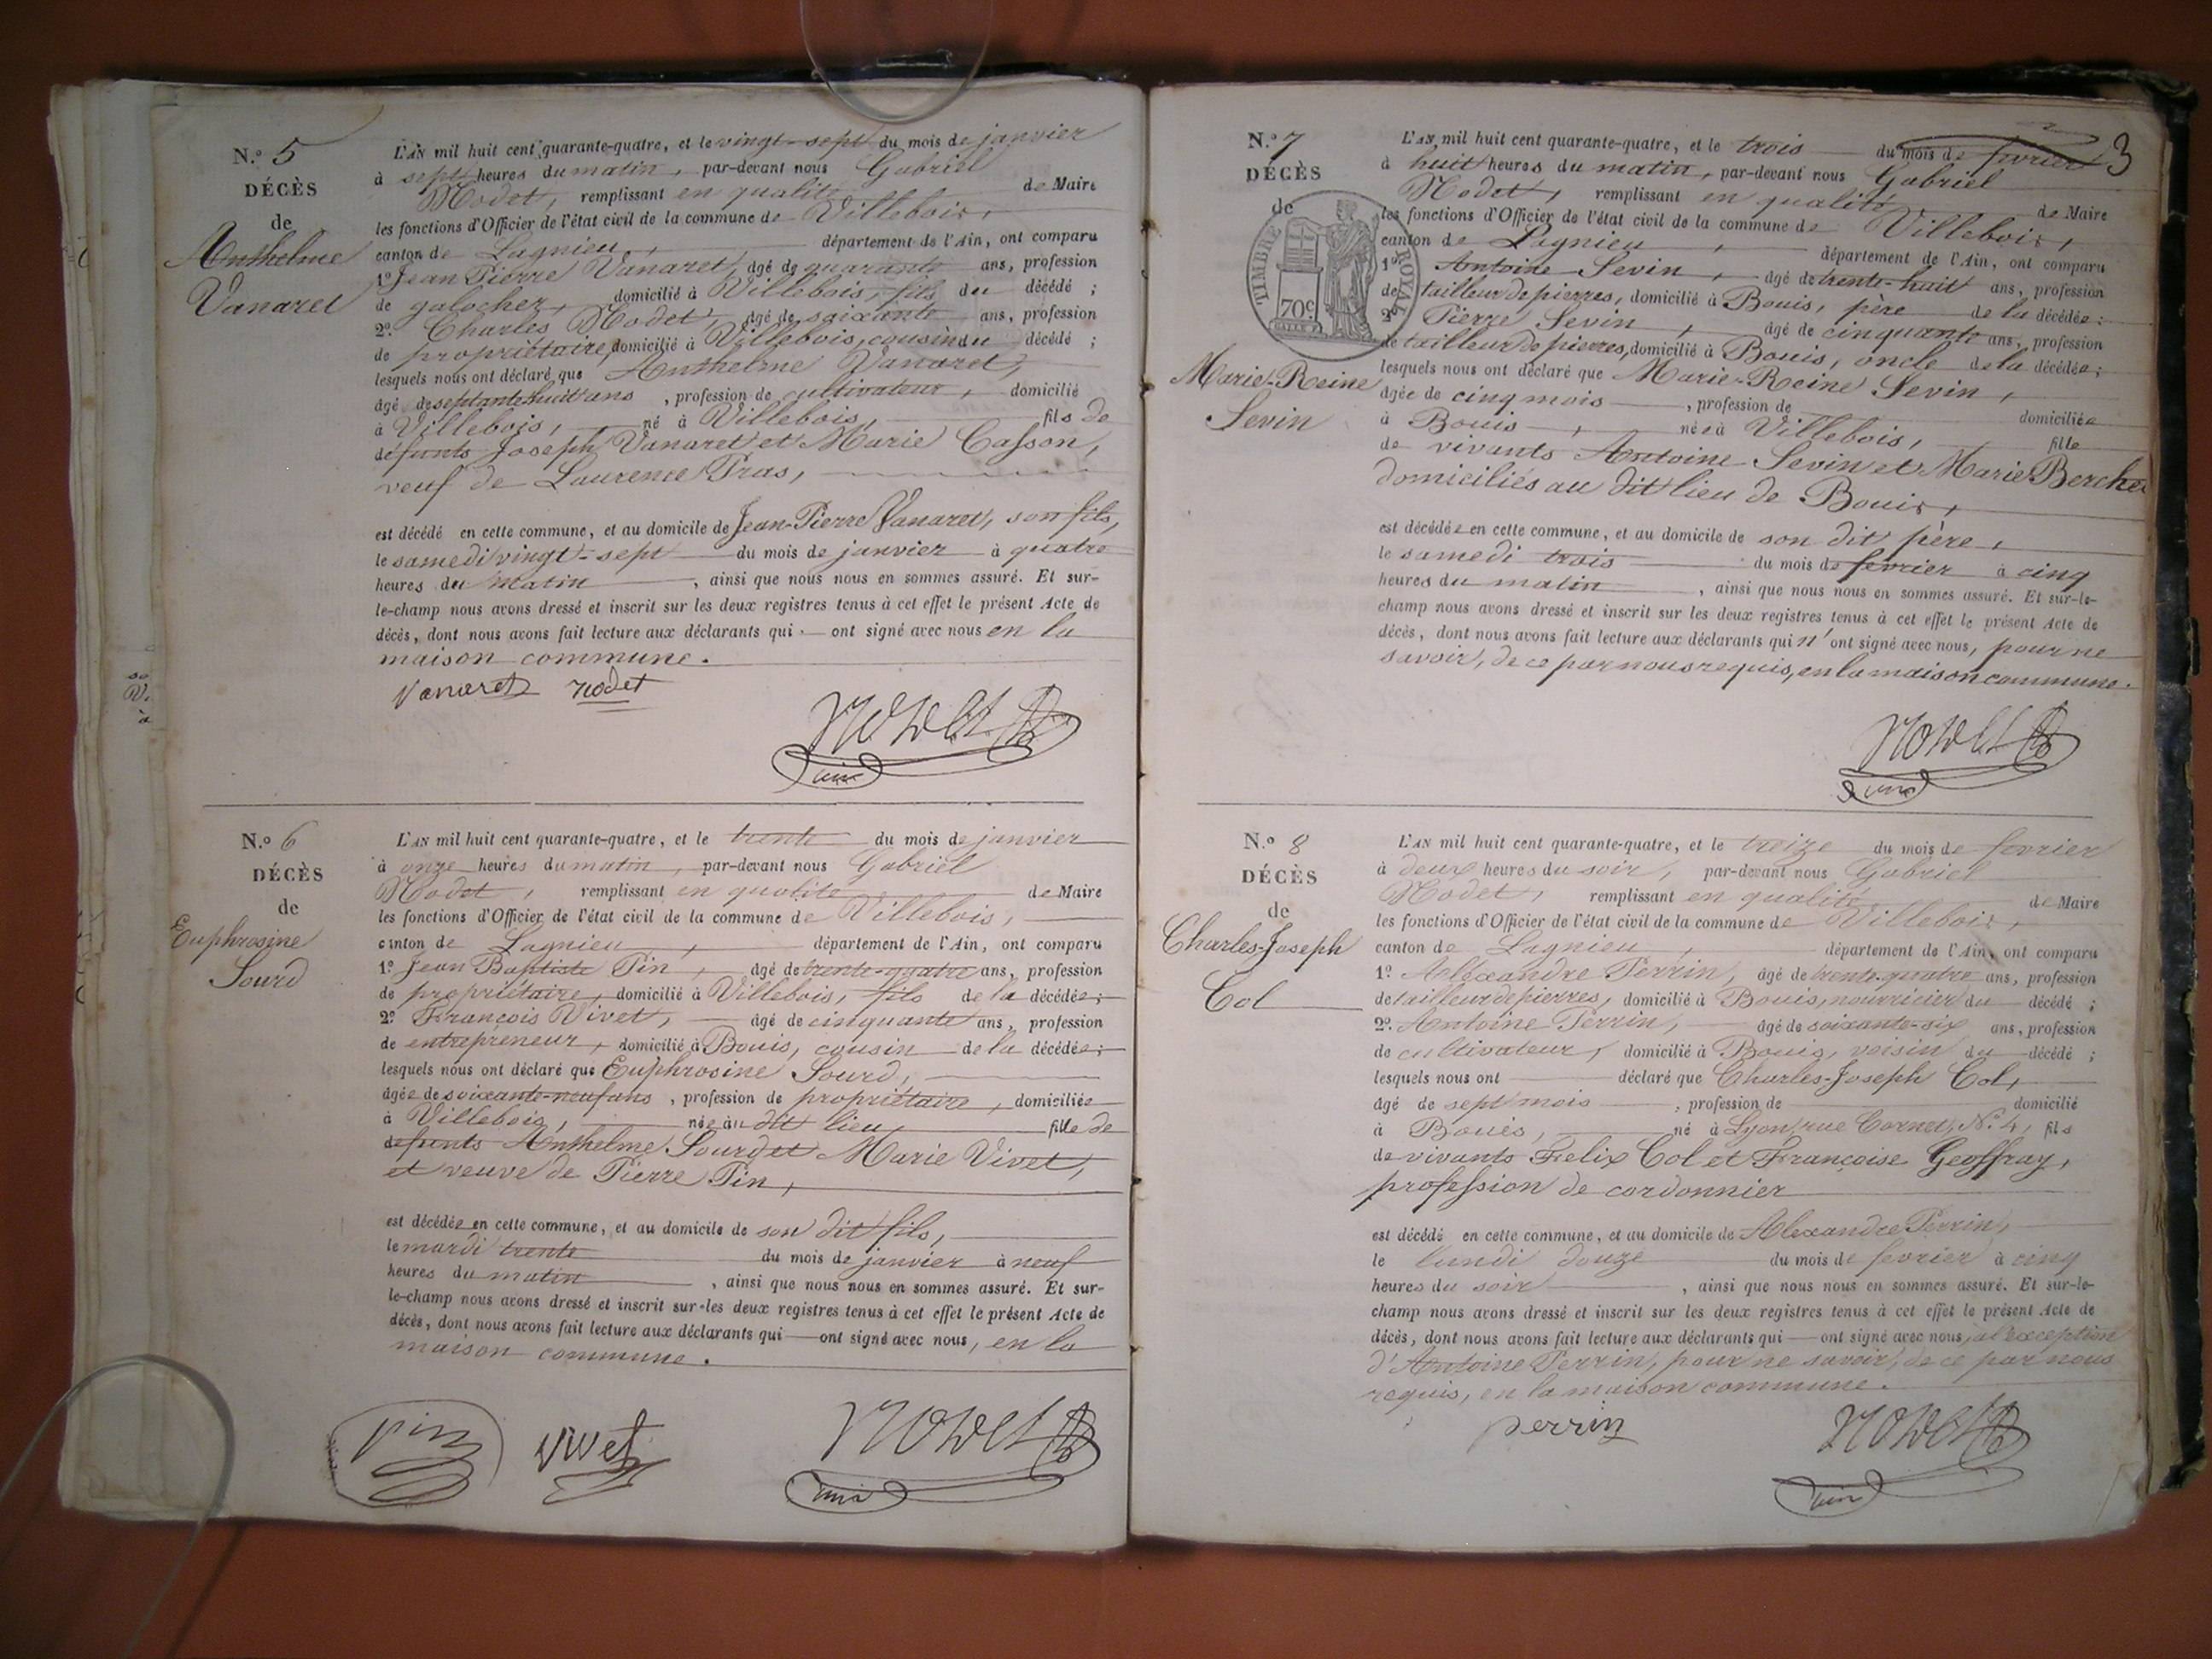 N.o 5
DÉCÈS
de
Anthelme
Vanaret
L'AN mil huit cent quarante-quatre, et le vingt-sept du mois de janvier
à sept heures du matin, par-devant nous Gabriel
Nodet, remplissant en qualité de Maire
les fonctions d'Officier de l'état civil de la commune de Villebois,
canton de Lagnieu, département de l'Ain, ont comparu
1.o Jean Pierre Vanaret, âgé de quarante ans, profession
de galocher, domicilié à Villebois, fils du décédé ;
2.o Charles Nodet, âgé de soixante ans, profession
de propriétaire, domicilié à Villebois, cousin du décédé ;
lesquels nous ont déclaré que Anthelme Vanaret,
âgé de septante huit ans, profession de cultivateur, domicilié
à Villebois, né à Villebois, fils de
défunts Joseph Vanaret et Marie Casson,
veuf de Laurence Pras,
est décédé en cette commune, et au domicile de Jean-Pierre Vanaret, son fils,
le samedi vingt-sept du mois de janvier à quatre
heures du matin, ainsi que nous nous en sommes assuré. Et sur-
le-champ nous avons dressé et inscrit sur les deux registres tenus à cet effet le présent Acte de
décès, dont nous avons fait lecture aux déclarants qui ont signé avec nous en la
maison commune.
Vanaret nodet
NODET
N.o 6
DÉCÈS
de
Euphrosine
Sourd
L'AN mil huit cent quarante-quatre, et le trente du mois de janvier
à onze heures du matin, par-devant nous Gabriel
Nodet, remplissant en qualité de Maire
les fonctions d'Officier de l'état civil de la commune de Villebois,
canton de Lagnieu, département de l'Ain, ont comparu
1.o Jean Baptiste Pin, âgé de trente-quatre ans, profession
de propriétaire, domicilié à Villebois, fils de la décédée ;
2.o François Vivet, âgé de cinquante ans, profession
de entrepreneur, domicilié à Bouis, cousin de la décédée ;
lesquels nous ont déclaré que Euphrosine Sourd,
âgée de soixante-neuf ans, profession de propriétaire, domiciliée
à Villebois, née au dit lieu fille de
défunts Anthelme Sourd et Marie Vivet,
et veuve de Pierre Pin,
est décédée en cette commune, et au domicile de son dit fils,
le mardi trente du mois de janvier à neuf
heures du matin, ainsi que nous nous en sommes assuré. Et sur-
le-champ nous avons dressé et inscrit sur les deux registres tenus à cet effet le présent Acte de
décès, dont nous avons fait lecture aux déclarants qui ont signé avec nous, en la
maison commune.
Pin vivet NODET
3
N.o 7
DÉCÈS
de
TIMBRE ROYAL
70c
Marie-Reine
Sevin
L'AN mil huit cent quarante-quatre, et le trois du mois de fevrier
à huit heures du matin, par-devant nous Gabriel
Nodet, remplissant en qualité de Maire
les fonctions d'Officier de l'état civil de la commune de Villebois,
canton de Lagnieu, département de l'Ain, ont comparu
1.o Antoine Sevin, âgé de trente-huit ans, profession
de tailleur de pierres, domicilié à Bouis, père de la décédée ;
2.o Pierre Sevin, âgé de cinquante ans, profession
de tailleur de pierres, domicilié à Bouis, oncle de la décédée ;
lesquels nous ont déclaré que Marie-Reine Sevin,
âgée de cinq mois, profession de domiciliée
à Bouis, née à Villebois, fille
de vivants Antoine Sevin et Marie Berche
domiciliés au dit lieu de Bouis,
est décédée en cette commune, et au domicile de son dit père,
le samedi trois du mois de fevrier à cinq
heures du matin, ainsi que nous nous en sommes assuré. Et sur-le-
champ nous avons dressé et inscrit sur les deux registres tenus à cet effet le présent Acte de
décès, dont nous avons fait lecture aux déclarants qui n'ont signé avec nous, pour ne
savoir, de ce par nous requis, en la maison commune.
NODET
N.o 8
DÉCÈS
de
Charles-Joseph
Col
L'AN mil huit cent quarante-quatre, et le treize du mois de fevrier
à deux heures du soir, par-devant nous Gabriel
Nodet, remplissant en qualité de Maire
les fonctions d'Officier de l'état civil de la commune de Villebois,
canton de Lagnieu, département de l'Ain, ont comparu
1.o Alexandre Perrin, âgé de trente-quatre ans, profession
de tailleur de pierres, domicilié à Bouis, nourricier du décédé ;
2.o Antoine Perrin, âgé de soixante-six ans, profession
de cultivateur, domicilié à Bouis, voisin du décédé ;
lesquels nous ont déclaré que Charles-Joseph Col,
âgé de sept mois, profession de domicilié
à Bouis, né à Lyon, rue Cornet, N.o 4, fils
de vivants Felix Col et Françoise Geoffray,
profession de cordonnier
est décédé en cette commune, et au domicile de Alexandre Perrin,
le lundi douze du mois de fevrier à cinq
heures du soir, ainsi que nous nous en sommes assuré. Et sur-le-
champ nous avons dressé et inscrit sur les deux registres tenus à cet effet le présent Acte de
décès, dont nous avons fait lecture aux déclarants qui ont signé avec nous, à l'exception
d'Antoine Perrin, pour ne savoir, de ce par nous
requis, en la maison commune.
perrin NODET